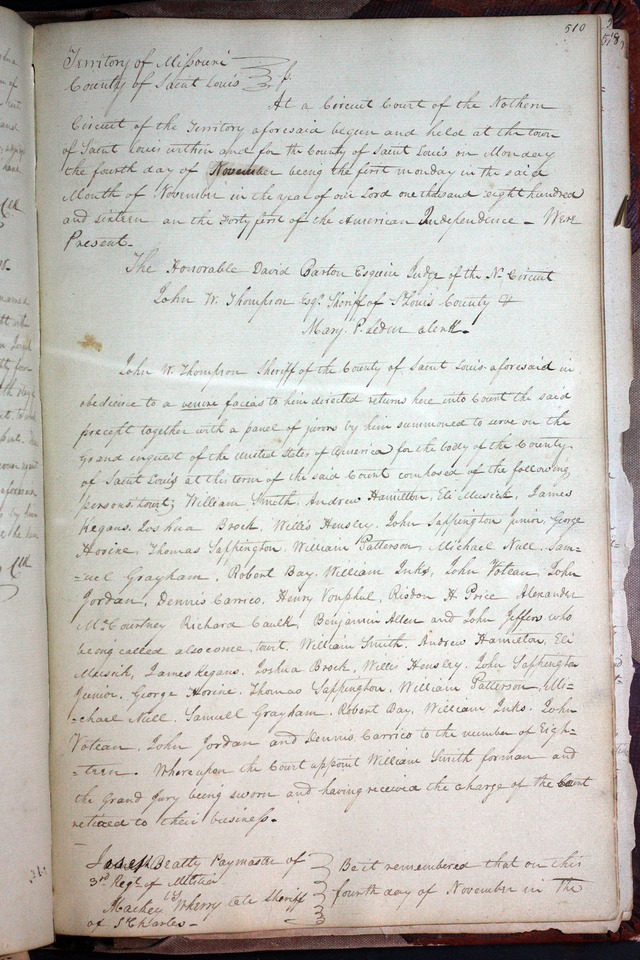 510
Territory of Missouri
County of Saint Louis } ss
At a Circuit Court of the Nothern
Circuit of the Territory aforesaid begun and held at the town
of Saint Louis within and for the County of Saint Louis on Monday
the fourth day of November being the first monday in the said
Month of November in the year of our Lord one thousand eight hundred
and sixteen an the Forty first of the American Independence - Were
Present -
The Honorable David Barton Esquire Judge of the No. Circuit
John W. Thompson Esqr. Sheriff of St Louis County &
Mary P. Leduc Clerk -
John W. Thompson Sheriff of the County of Saint Louis aforesaid in
obedience to a venire facias to him directed returns here into Court the said
precept together with a panel of jurors by him summoned to serve on the
Grand inquest of the United States of America for the body of the County
of Saint Louis at this term of the said Court composed of the following
persons, towit; William Smith, Andrew Hamilton, Eli Musick, James
Kegans, Joshua Brock, Willis Hensley, John Sappington Junior, George
Horine, Thomas Sappington, William Patterson, Michael Null, Sam-
-uel Grayham, Robert Bay, William Inks, John Votean, John
Jordan, Dennis Carrico, Henry Vonphul, Risdon H. Price Alexander
McCourtney Richard Caulk, Benjamin Allen and John Jeffers who
being called also come, towit. William Smith, Andrew Hamilton, Eli
Musick, James Kegans, Joshua Brock, Willis Hensley, John Sappington
Junior, George Horine, Thomas Sappington, William Patterson, Mi-
-chael Null, Samuel Grayham, Robert Bay, William Inks, John
Votean, John Jordan and Dennis Carrico to the number of Eigh-
-teen. Whereupon the Court appoint William Smith forman and
the Grand Jury being sworn and having received the charge of the Court
retired to their business.
Joseph Beatty Paymaster of
3rd Regt. of Militia
vs
Mackey Wherry late Sheriff
of St Charles -
Be it remembered that on this
fourth day of November in the